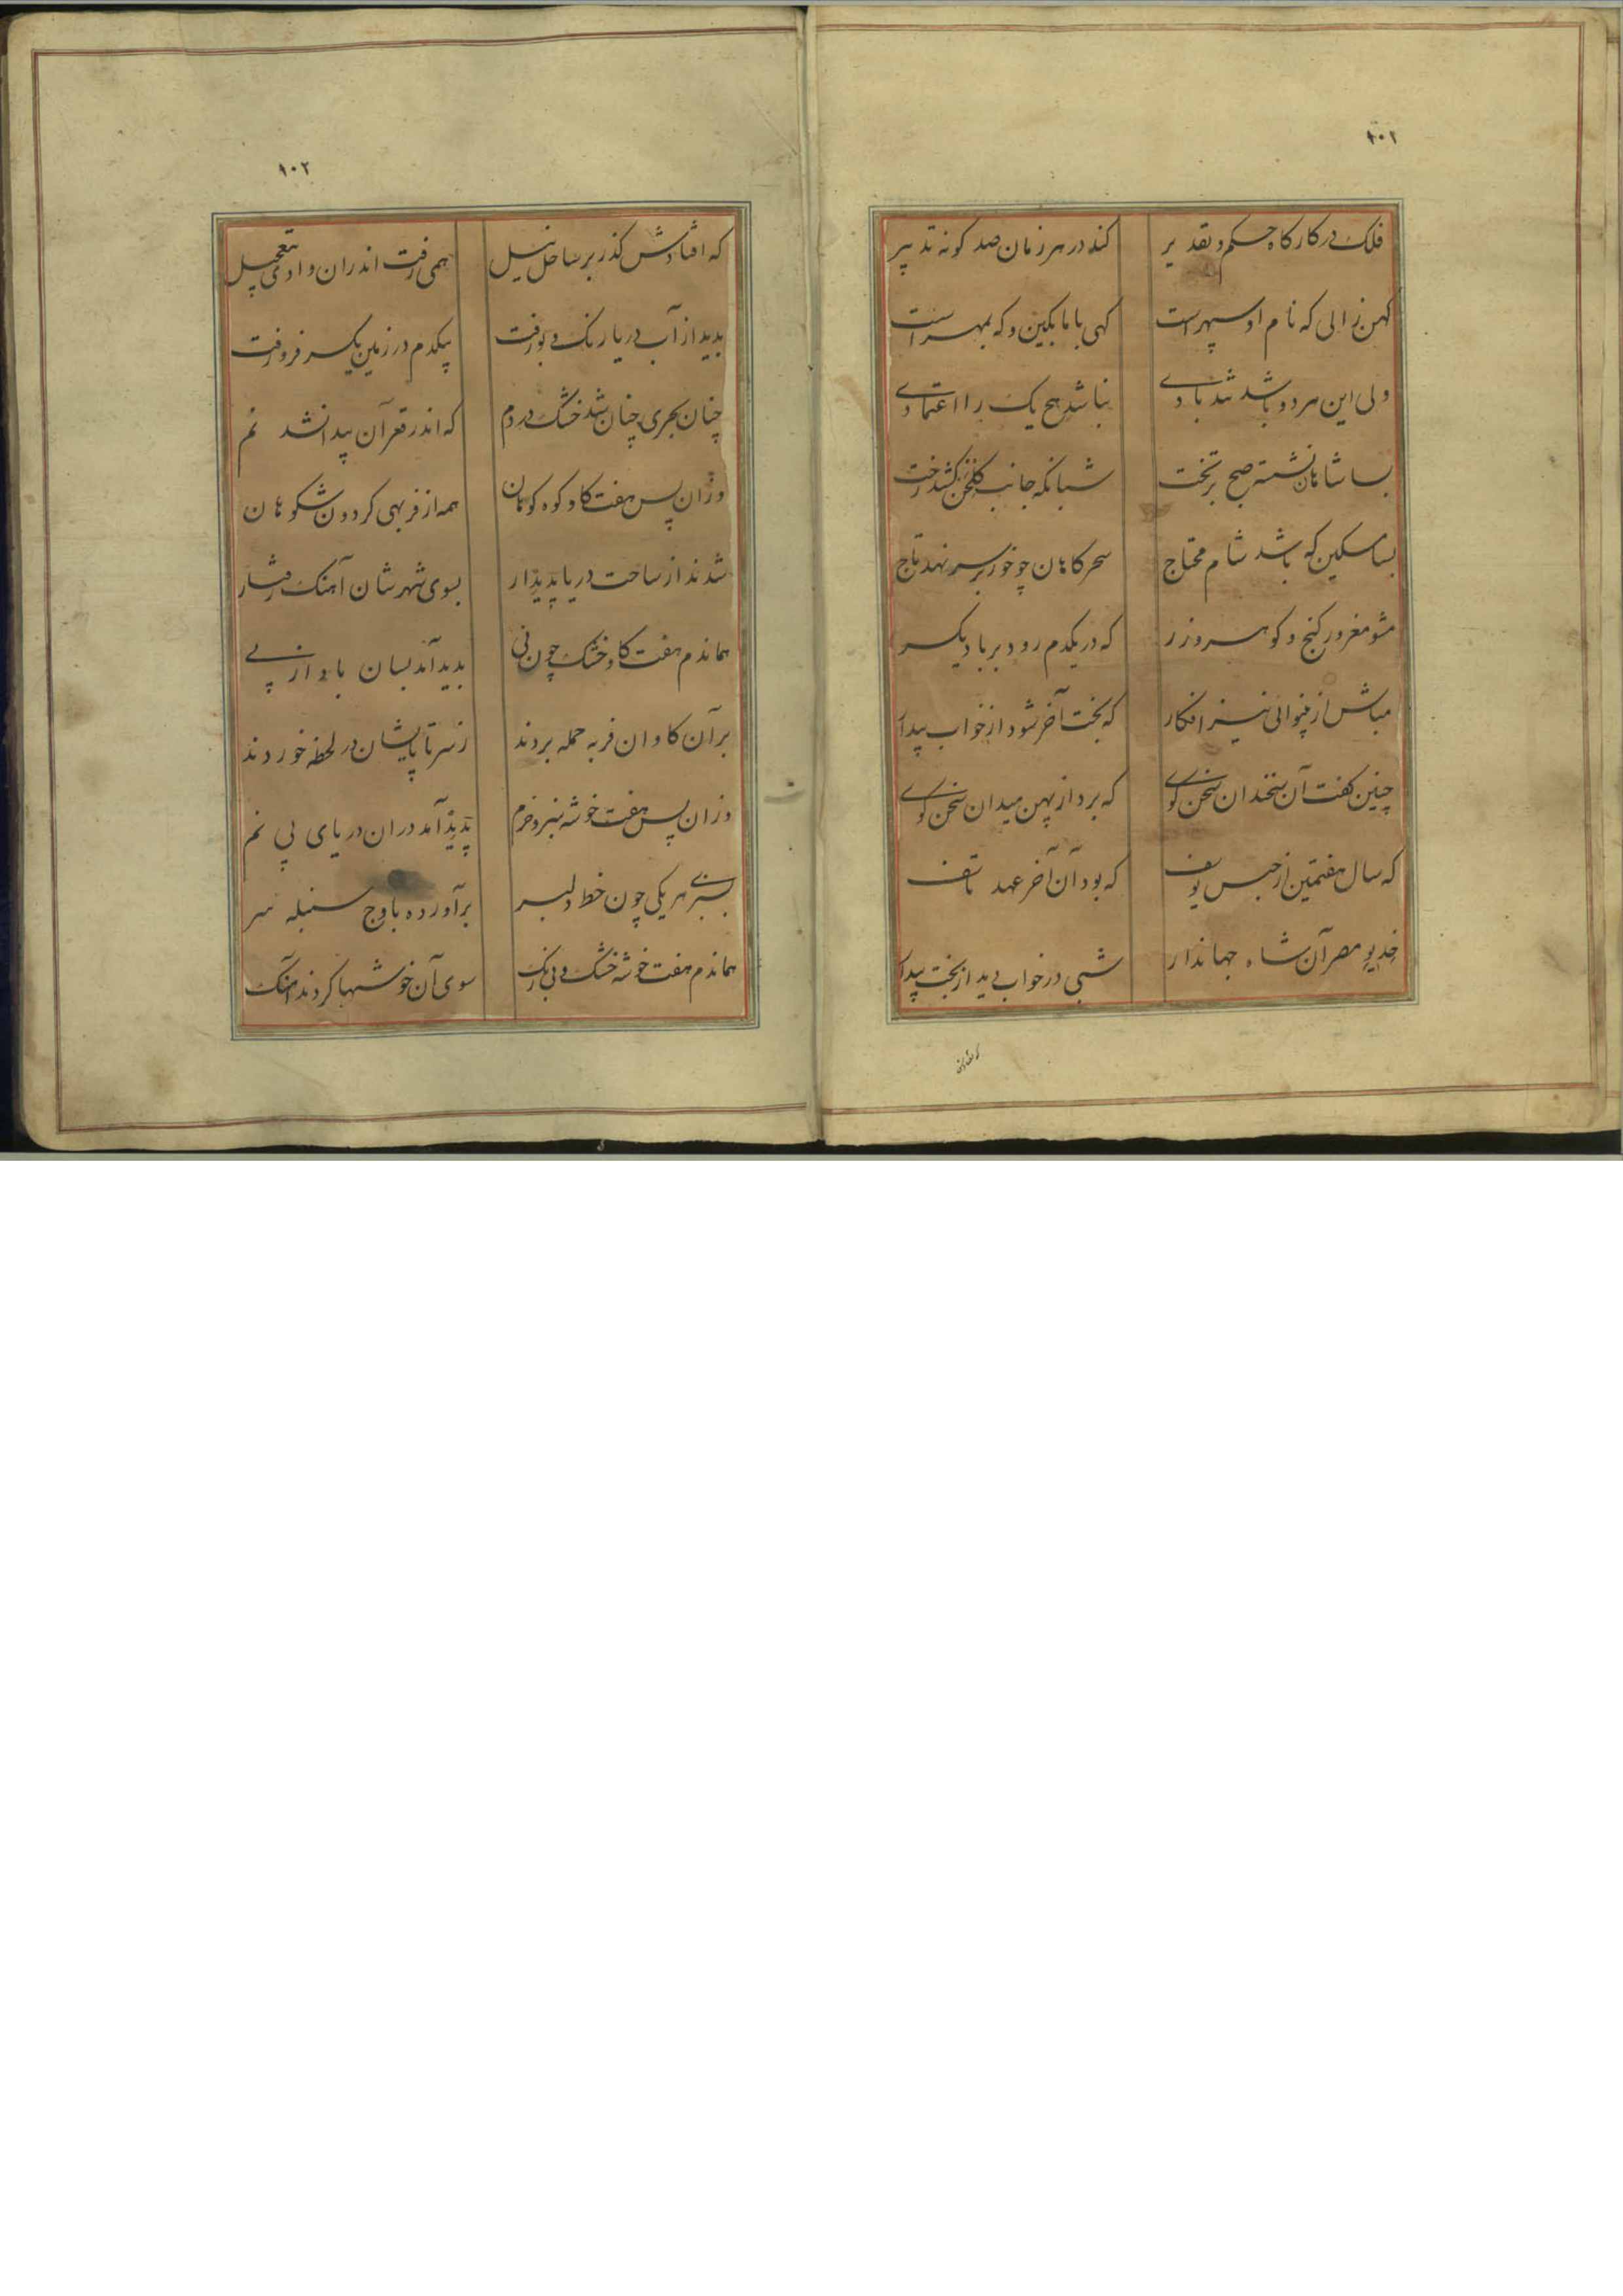 ١٠١
فلک در کارکاه حکم و تقدیر کند در هر زمان صد کونه تدبیر
کهن زالی که نام او سپهر است کهی با ما بکین و که بمهر است
ولی این هر دو باشد تند بادی نباشد هیچ یک را اعتمادی
بسا شاهان نشسته صبح بر تخت شبانکه جانب کلخن کشد رخت
بسا مسکین که باشد شام محتاج سحرکاهان چو خور بر سر نهد تاج
مشو مغرور کنج و کوهر و زر که در یکدم رود بر باد یکسر
مباش از بینوائی نیز افکار که بخت آخر شود از خواب بیدار
چنین کفت آن سخندان سخن کوی که برد از پهن میدان سخن کوی
که سال هفتمین از حبس یوسف که بود آن آخر عهد تاسف
خدیو مصر آن شاه جهاندار شبی در خواب دید از بخت بیدار
که افتادش
١٠٢
که افتادش کذر بر ساحل نیل همی رفت اندران وادی بتعجیل
بدید از آب دریا رنک و بو رفت بیکدم در زمین یکسر فرو رفت
چنان بحری چنان شد خشک در دم که اندر قعر آن پیدا نشد نم
وزان پس هفت کاو کوه کوهان همه از فربهی کردون شکوهان
شدند از ساحت دریا پدیدار بسوی شهرشان آهنک رفتار
هماندم هفت کاو خشک چون نی بدید آمد بسان باد از پی
بر آن کاوان فربه حمله بردند ز سر تا پایشان در لحظه خوردند
وزان پس هفت خوشه سبز و خرم پدید آمد دران دریای بی نم
بسبزی هر یکی چون خط دلبر برآورده باوج سنبله سر
هماندم هفت خوشه خشک و بی رنک سوی آن خوشها کردند آهنک